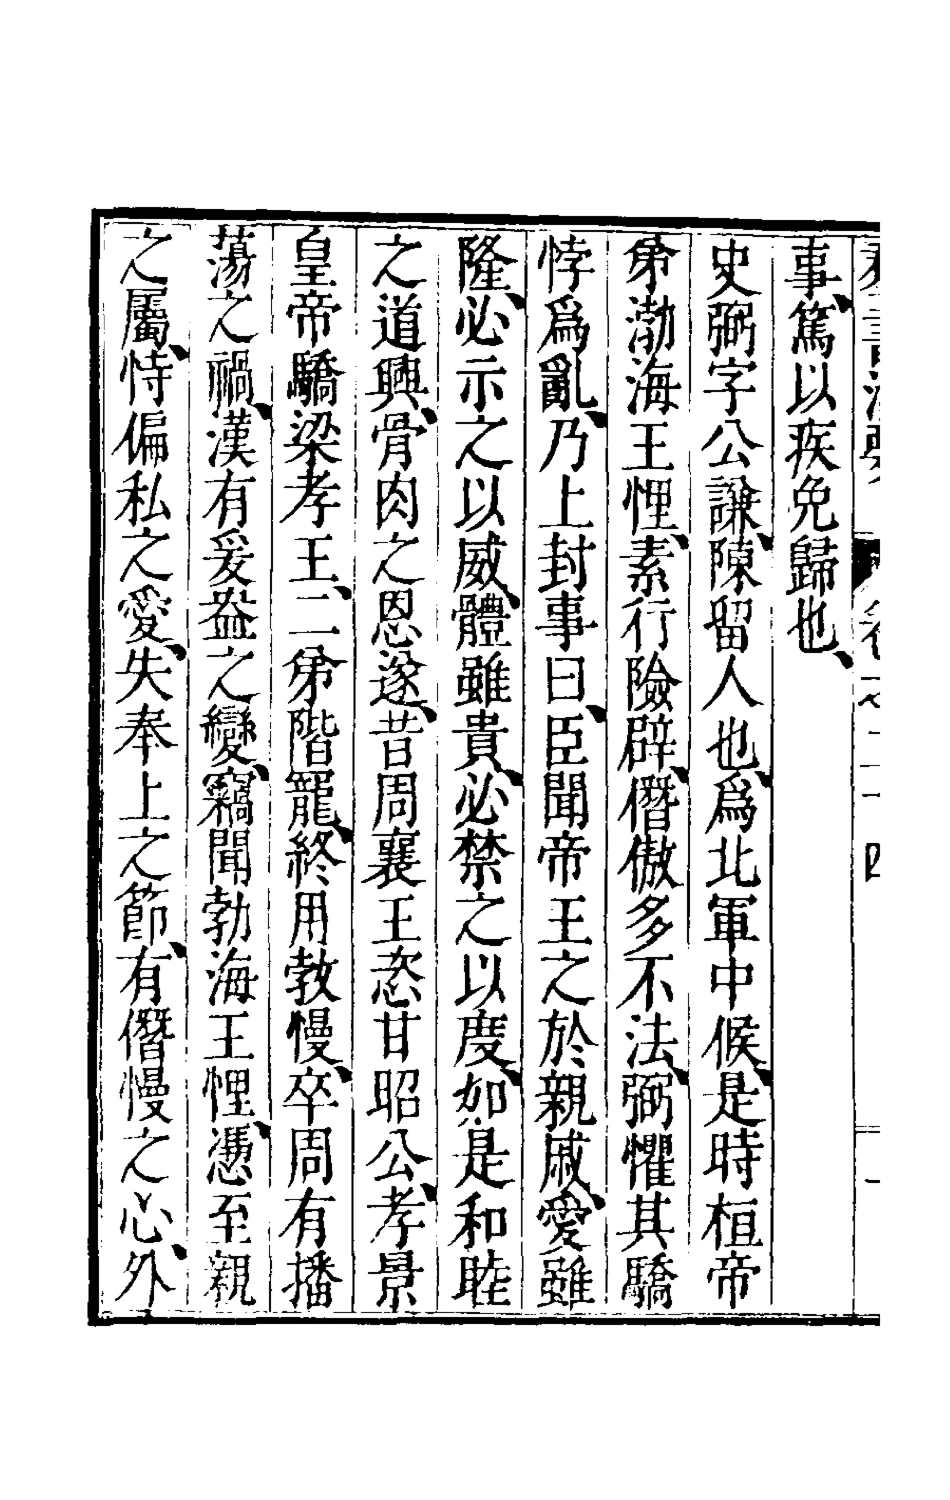 事、篤以疾免歸也、
史弼字公謙、陳留人也、爲北軍中候、是時桓帝
弟渤海王悝、素行險辟、僭傲多不法、弼懼其驕
悖爲亂、乃上封事曰、臣聞帝王之於親戚、愛雖
隆、必示之以威、體雖貴、必禁之以度、如是和睦
之道興、骨肉之恩遂、昔周襄王恣甘昭公、孝景
皇帝驕梁孝王、二弟階寵、終用敦慢、卒周有播
蕩之禍、漢有爰盎之變、竊聞勃海王悝、憑至親
之屬、恃偏私之愛、失奉上之節、有僭慢之心、外